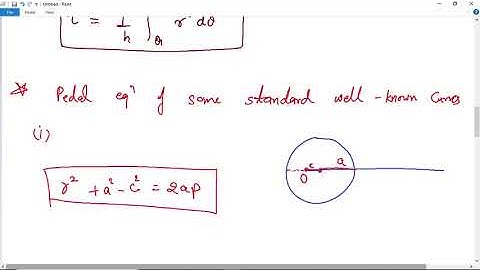 Untitled - Paint
File Home View
t = 1/h ∫ r² dθ
θ₁
Pedal eqⁿ of some standard well-known Curves
(i)
r² + a² - c² = 2ap
c a
O